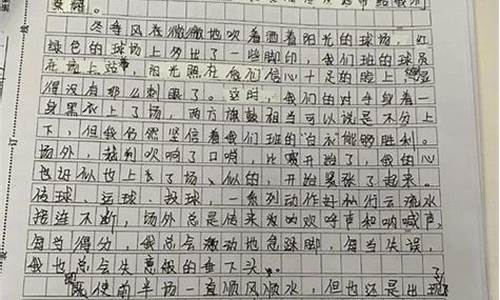 冬季风在微微地吹着洒着阳光的球场，红
绿色的球场上多出了一些脚印，我们班的球员
在场上站，阳光照在他们信心十足的脸上
得没有那么刺眼了。这时，我们的对手身着一
身黑衣上了场，两方旗鼓相当可以说是不分上
下，但我仍然坚信着我们班的"白衣能够胜利。
场外，裁判吹响了口哨，比赛开始了，我的心
也近似也上了场、似的，开始紧张了起来。
传球、运球、投球，一系列动作好似行云流水
接连不断，场外总是传来为的欢呼声和呐喊声，
每当得分，我总会激动地直跺脚，每当失误，
我也总会失意般的垂下头。
既使前半场一直顺风顺水，但也还是出现